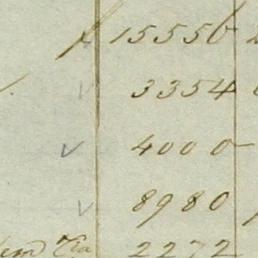 15550
3354
4000
8980
2272